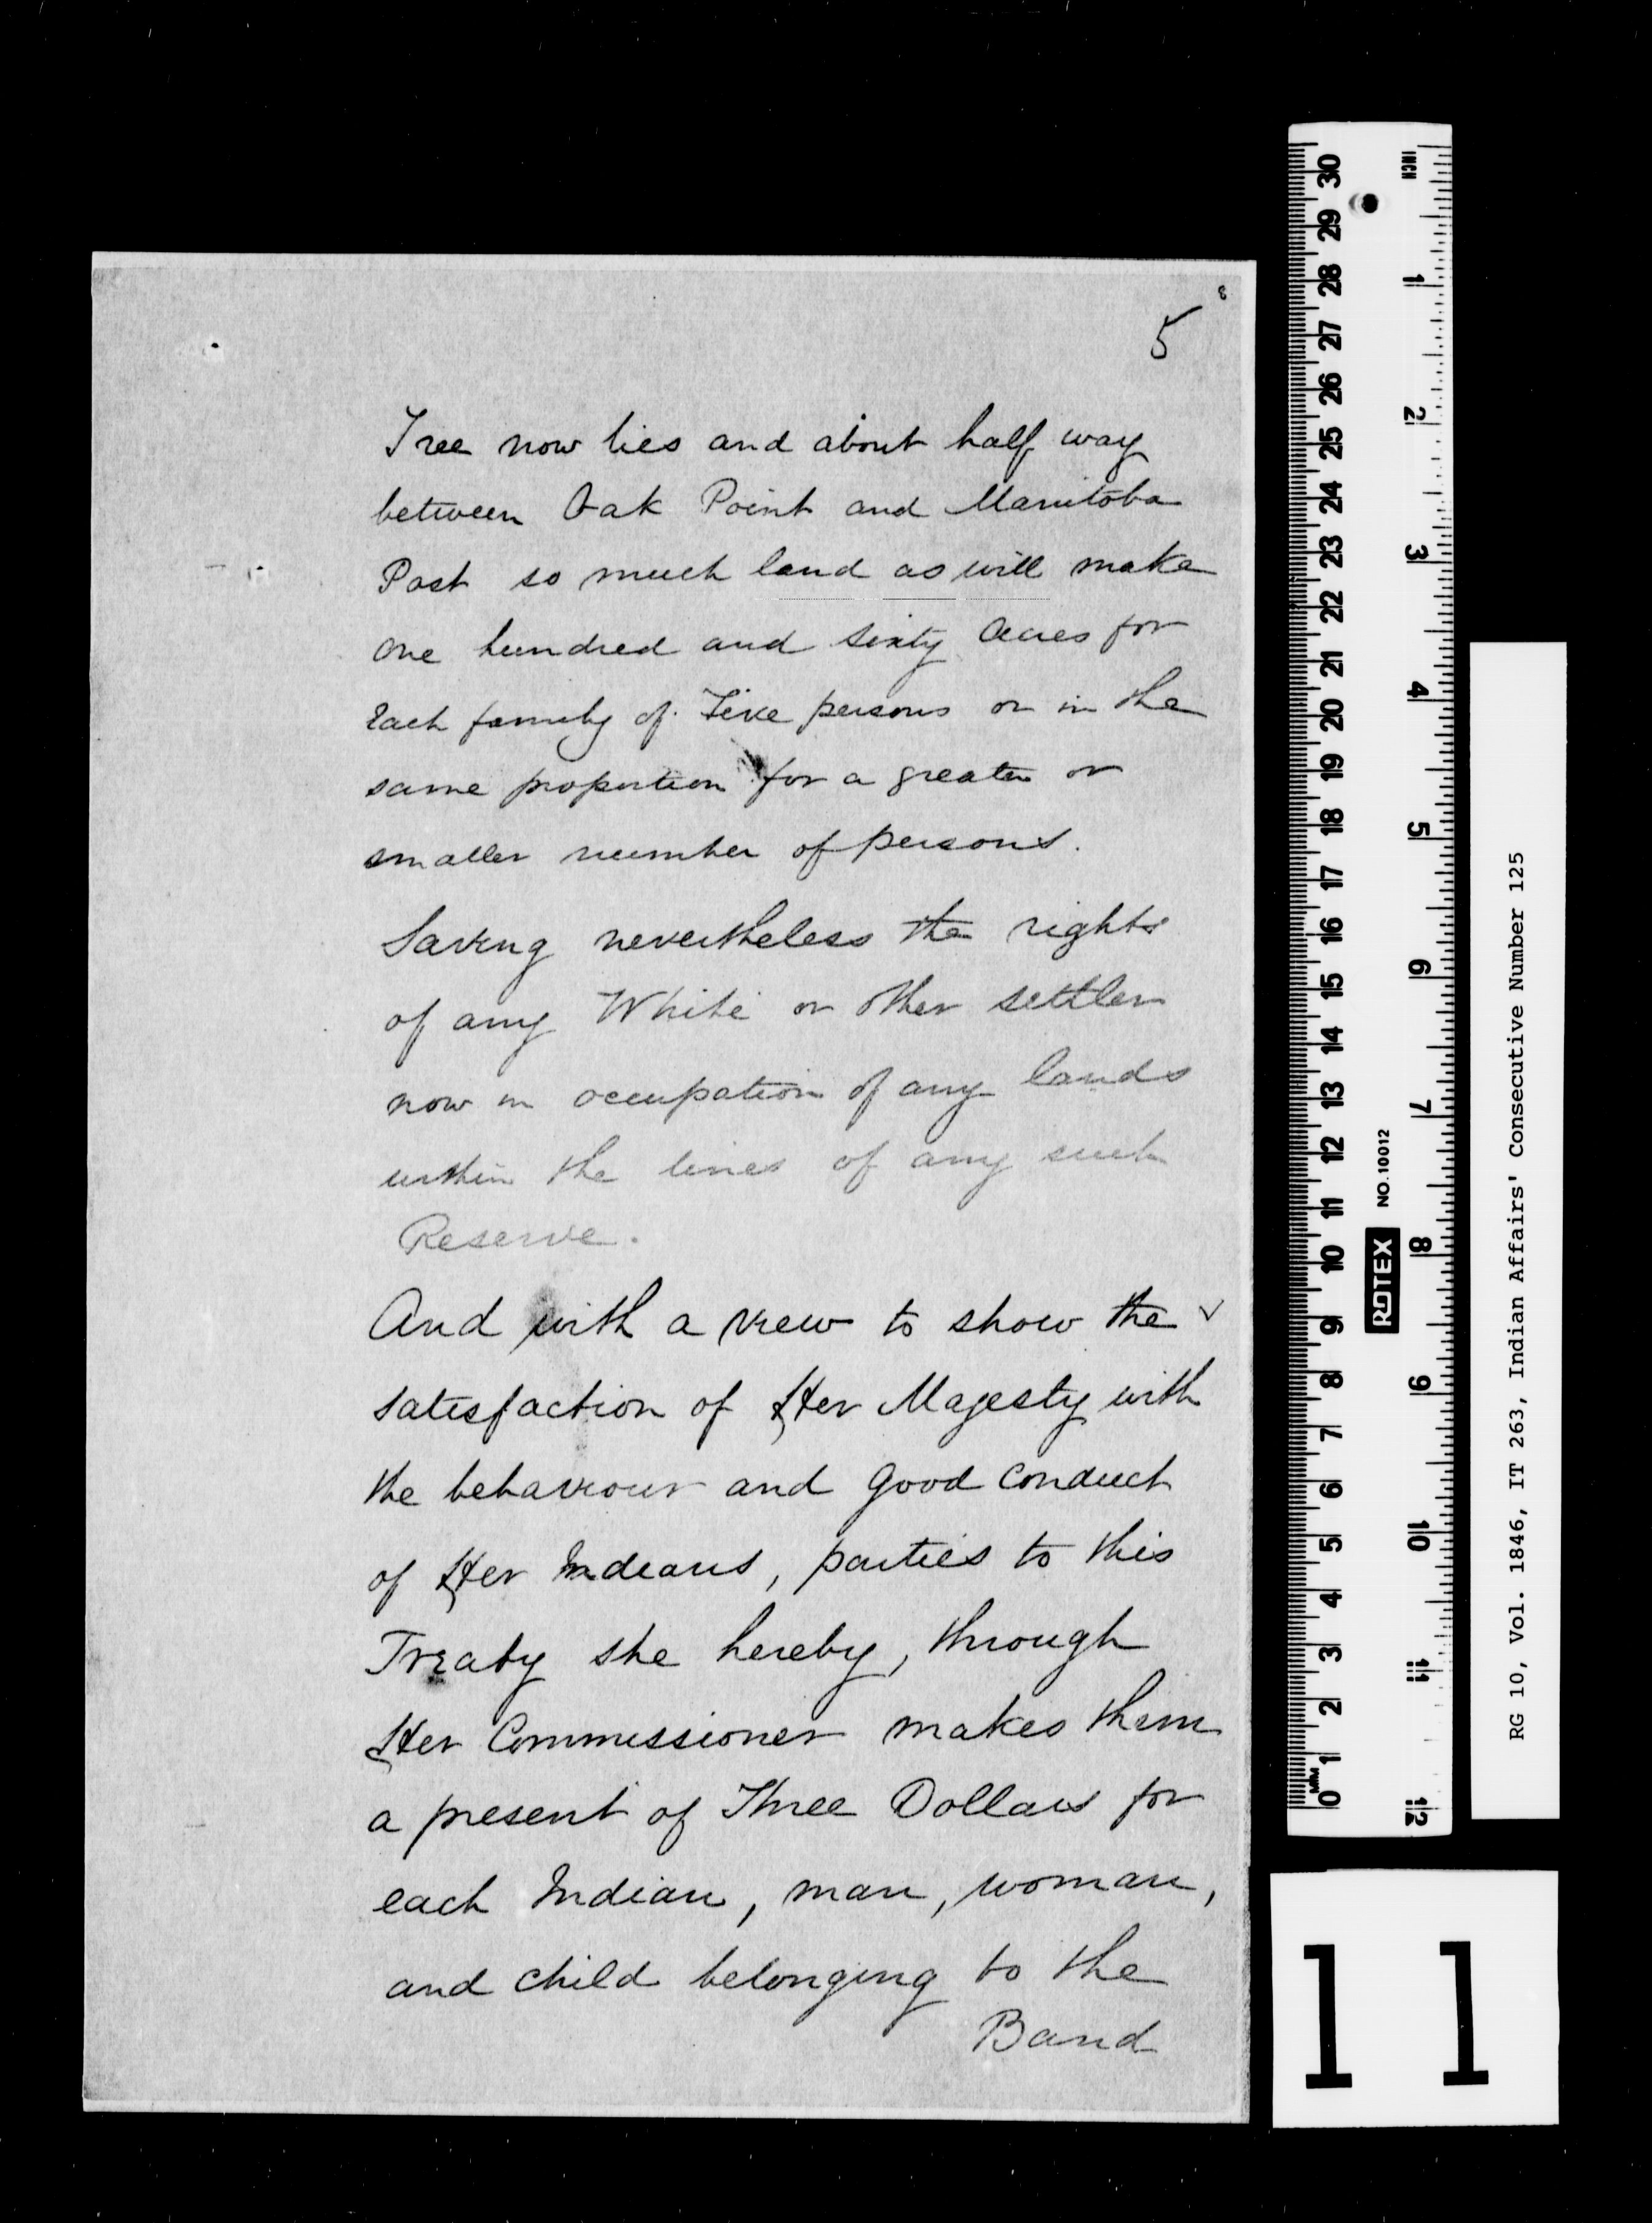 5
8
Tree now lies and about half way
between Oak Point and Manitoba
Post so much land as will make
One hundred and sixty Acres for
Each family of Five persons or in the
same proportion for a greater or
smaller number of persons.
Saving nevertheless the rights
of any White or other settler
now in occupation of any lands
within the lines of any such
Reserve.
And with a view to show the ✓
satisfaction of Her Majesty with
the behaviour and good conduct
of Her Indians, parties to this
Treaty she hereby, through
Her Commissioner makes them
a present of Three Dollars for
each Indian, man, woman,
and child belonging to the
Band
INCH
1 2 3 4 5 6 7 8 9 10 11 12
30 29 28 27 26 25 24 23 22 21 20 19 18 17 16 15 14 13 12 11 10 9 8 7 6 5 4 3 2 1 0
MM
ROTEX NO.10012
RG 10, Vol. 1846, IT 263, Indian Affairs' Consecutive Number 125
1 1